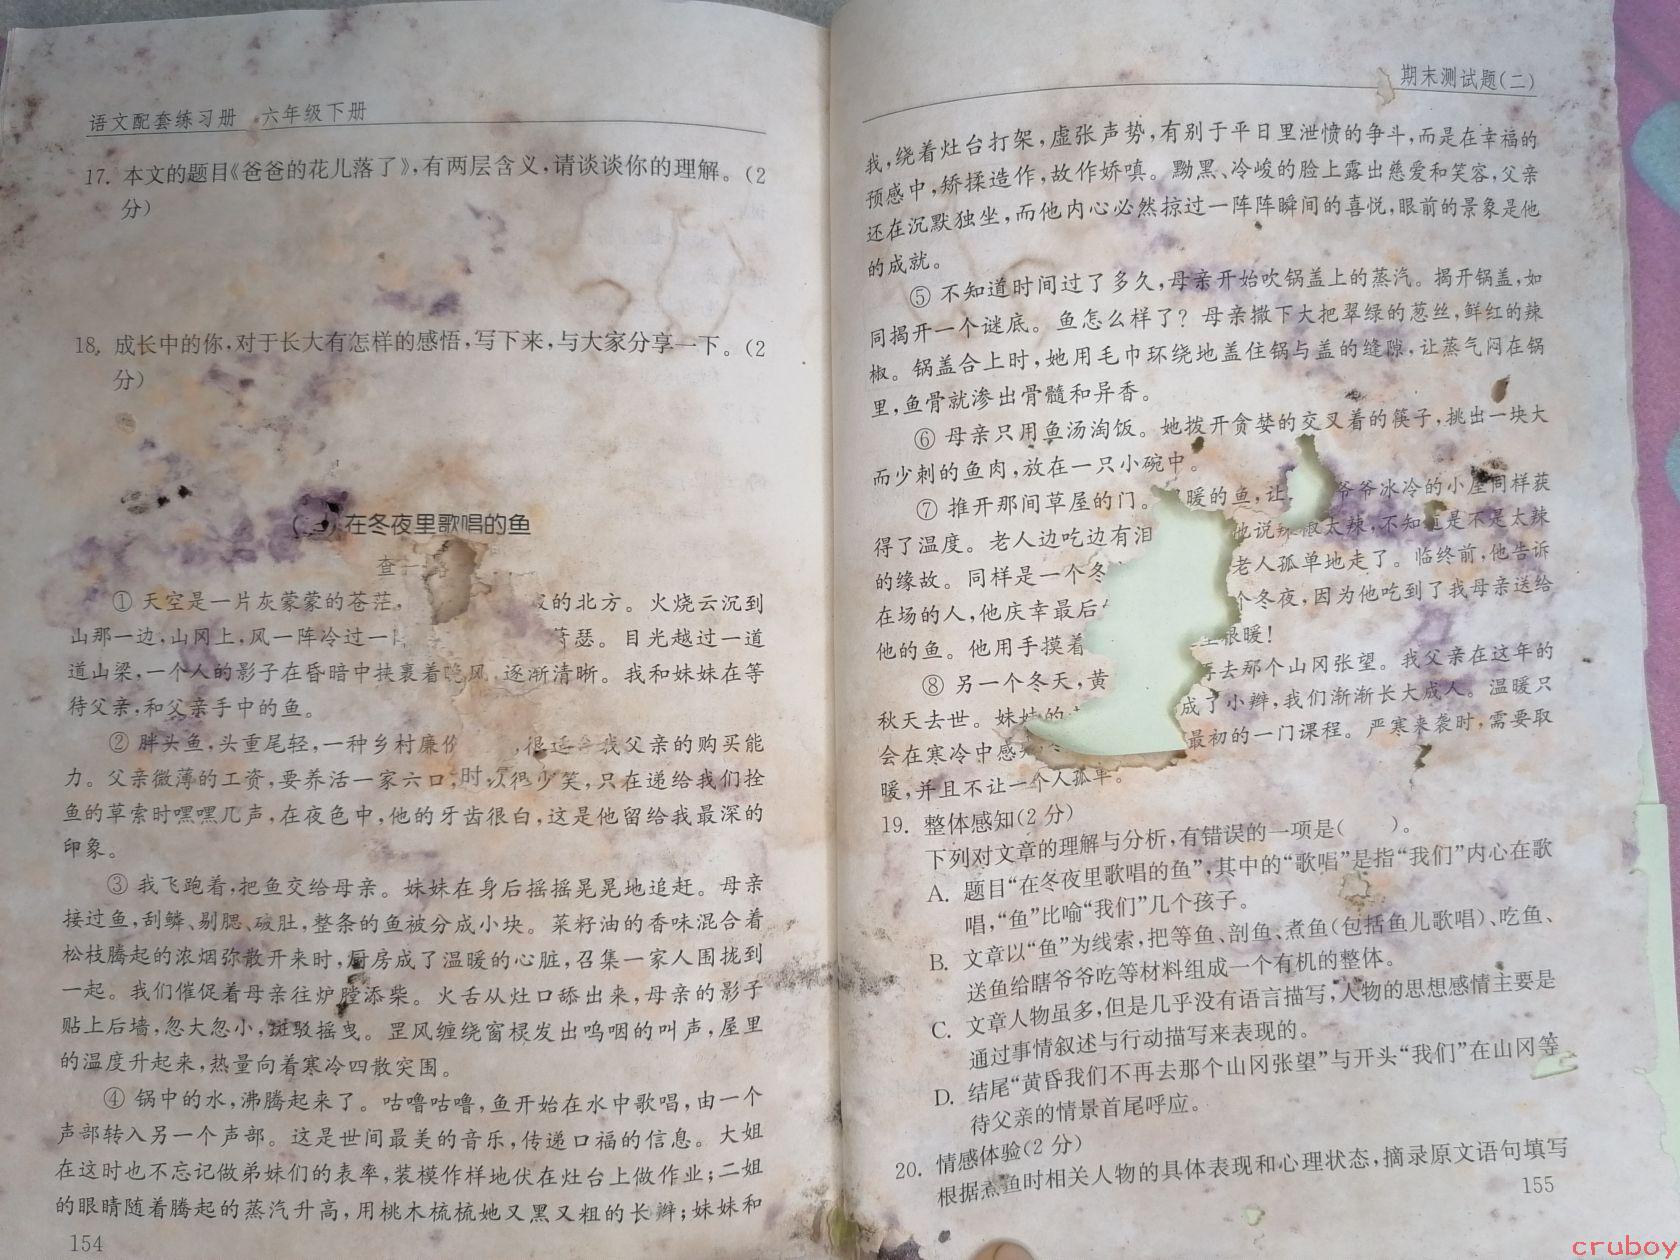 语文配套练习册 六年级下册
17. 本文的题目《爸爸的花儿落了》,有两层含义,请谈谈你的理解。(2
分)
18. 成长中的你,对于长大有怎样的感悟,写下来,与大家分享一下。(2
分)
在冬夜里歌唱的鱼
查一
① 天空是一片灰蒙蒙的苍茫, 的北方。火烧云沉到
山那一边,山冈上,风一阵冷过一 瑟。目光越过一道
道山梁,一个人的影子在昏暗中扶裹着晚风,逐渐清晰。我和妹妹在等
待父亲,和父亲手中的鱼。
② 胖头鱼,头重尾轻,一种乡村廉价 ,很适合我父亲的购买能
力。父亲微薄的工资,要养活一家六口, 很少笑,只在递给我们拴
鱼的草索时嘿嘿几声,在夜色中,他的牙齿很白,这是他留给我最深的
印象。
③ 我飞跑着,把鱼交给母亲。妹妹在身后摇摇晃晃地追赶。母亲
接过鱼,刮鳞、剔腮、破肚,整条的鱼被分成小块。菜籽油的香味混合着
松枝腾起的浓烟弥散开来时,厨房成了温暖的心脏,召集一家人围拢到
一起。我们催促着母亲往炉膛添柴。火舌从灶口舔出来,母亲的影子
贴上后墙,忽大忽小,斑驳摇曳。罡风缠绕窗棂发出呜咽的叫声,屋里
的温度升起来,热量向着寒冷四散突围。
④ 锅中的水,沸腾起来了。咕噜咕噜,鱼开始在水中歌唱,由一个
声部转入另一个声部。这是世间最美的音乐,传递口福的信息。大姐
在这时也不忘记做弟妹们的表率,装模作样地伏在灶台上做作业;二姐
的眼睛随着腾起的蒸汽升高,用桃木梳梳她又黑又粗的长辫;妹妹和
154
期末测试题(二)
我,绕着灶台打架,虚张声势,有别于平日里泄愤的争斗,而是在幸福的
预感中,矫揉造作,故作娇嗔。黝黑、冷峻的脸上露出慈爱和笑容,父亲
还在沉默独坐,而他内心必然掠过一阵阵瞬间的喜悦,眼前的景象是他
的成就。
⑤ 不知道时间过了多久,母亲开始吹锅盖上的蒸汽。揭开锅盖,如
同揭开一个谜底。鱼怎么样了?母亲撒下大把翠绿的葱丝,鲜红的辣
椒。锅盖合上时,她用毛巾环绕地盖住锅与盖的缝隙,让蒸气闷在锅
里,鱼骨就渗出骨髓和异香。
⑥ 母亲只用鱼汤淘饭。她拨开贪婪的交叉着的筷子,挑出一块大
而少刺的鱼肉,放在一只小碗中。
⑦ 推开那间草屋的门。 暖的鱼,让 爷爷冰冷的小屋同样获
得了温度。老人边吃边有泪 他说辣椒太辣,不知道是不是太辣
的缘故。同样是一个冬 老人孤单地走了。临终前,他告诉
在场的人,他庆幸最后 个冬夜,因为他吃到了我母亲送给
他的鱼。他用手摸着 很暖!
⑧ 另一个冬天,黄 再去那个山冈张望。我父亲在这年的
秋天去世。妹妹的 成了小辫,我们渐渐长大成人。温暖只
会在寒冷中感 最初的一门课程。严寒来袭时,需要取
暖,并且不让一个人孤单。
19. 整体感知(2 分)
下列对文章的理解与分析,有错误的一项是( )。
A. 题目“在冬夜里歌唱的鱼”,其中的“歌唱”是指“我们”内心在歌
唱,“鱼”比喻“我们”几个孩子。
B. 文章以“鱼”为线索,把等鱼、剖鱼、煮鱼(包括鱼儿歌唱)、吃鱼、
送鱼给瞎爷爷吃等材料组成一个有机的整体。
C. 文章人物虽多,但是几乎没有语言描写,人物的思想感情主要是
通过事情叙述与行动描写来表现的。
D. 结尾“黄昏我们不再去那个山冈张望”与开头“我们”在山冈等
待父亲的情景首尾呼应。
20. 情感体验(2 分)
根据煮鱼时相关人物的具体表现和心理状态,摘录原文语句填写
155
cruboy